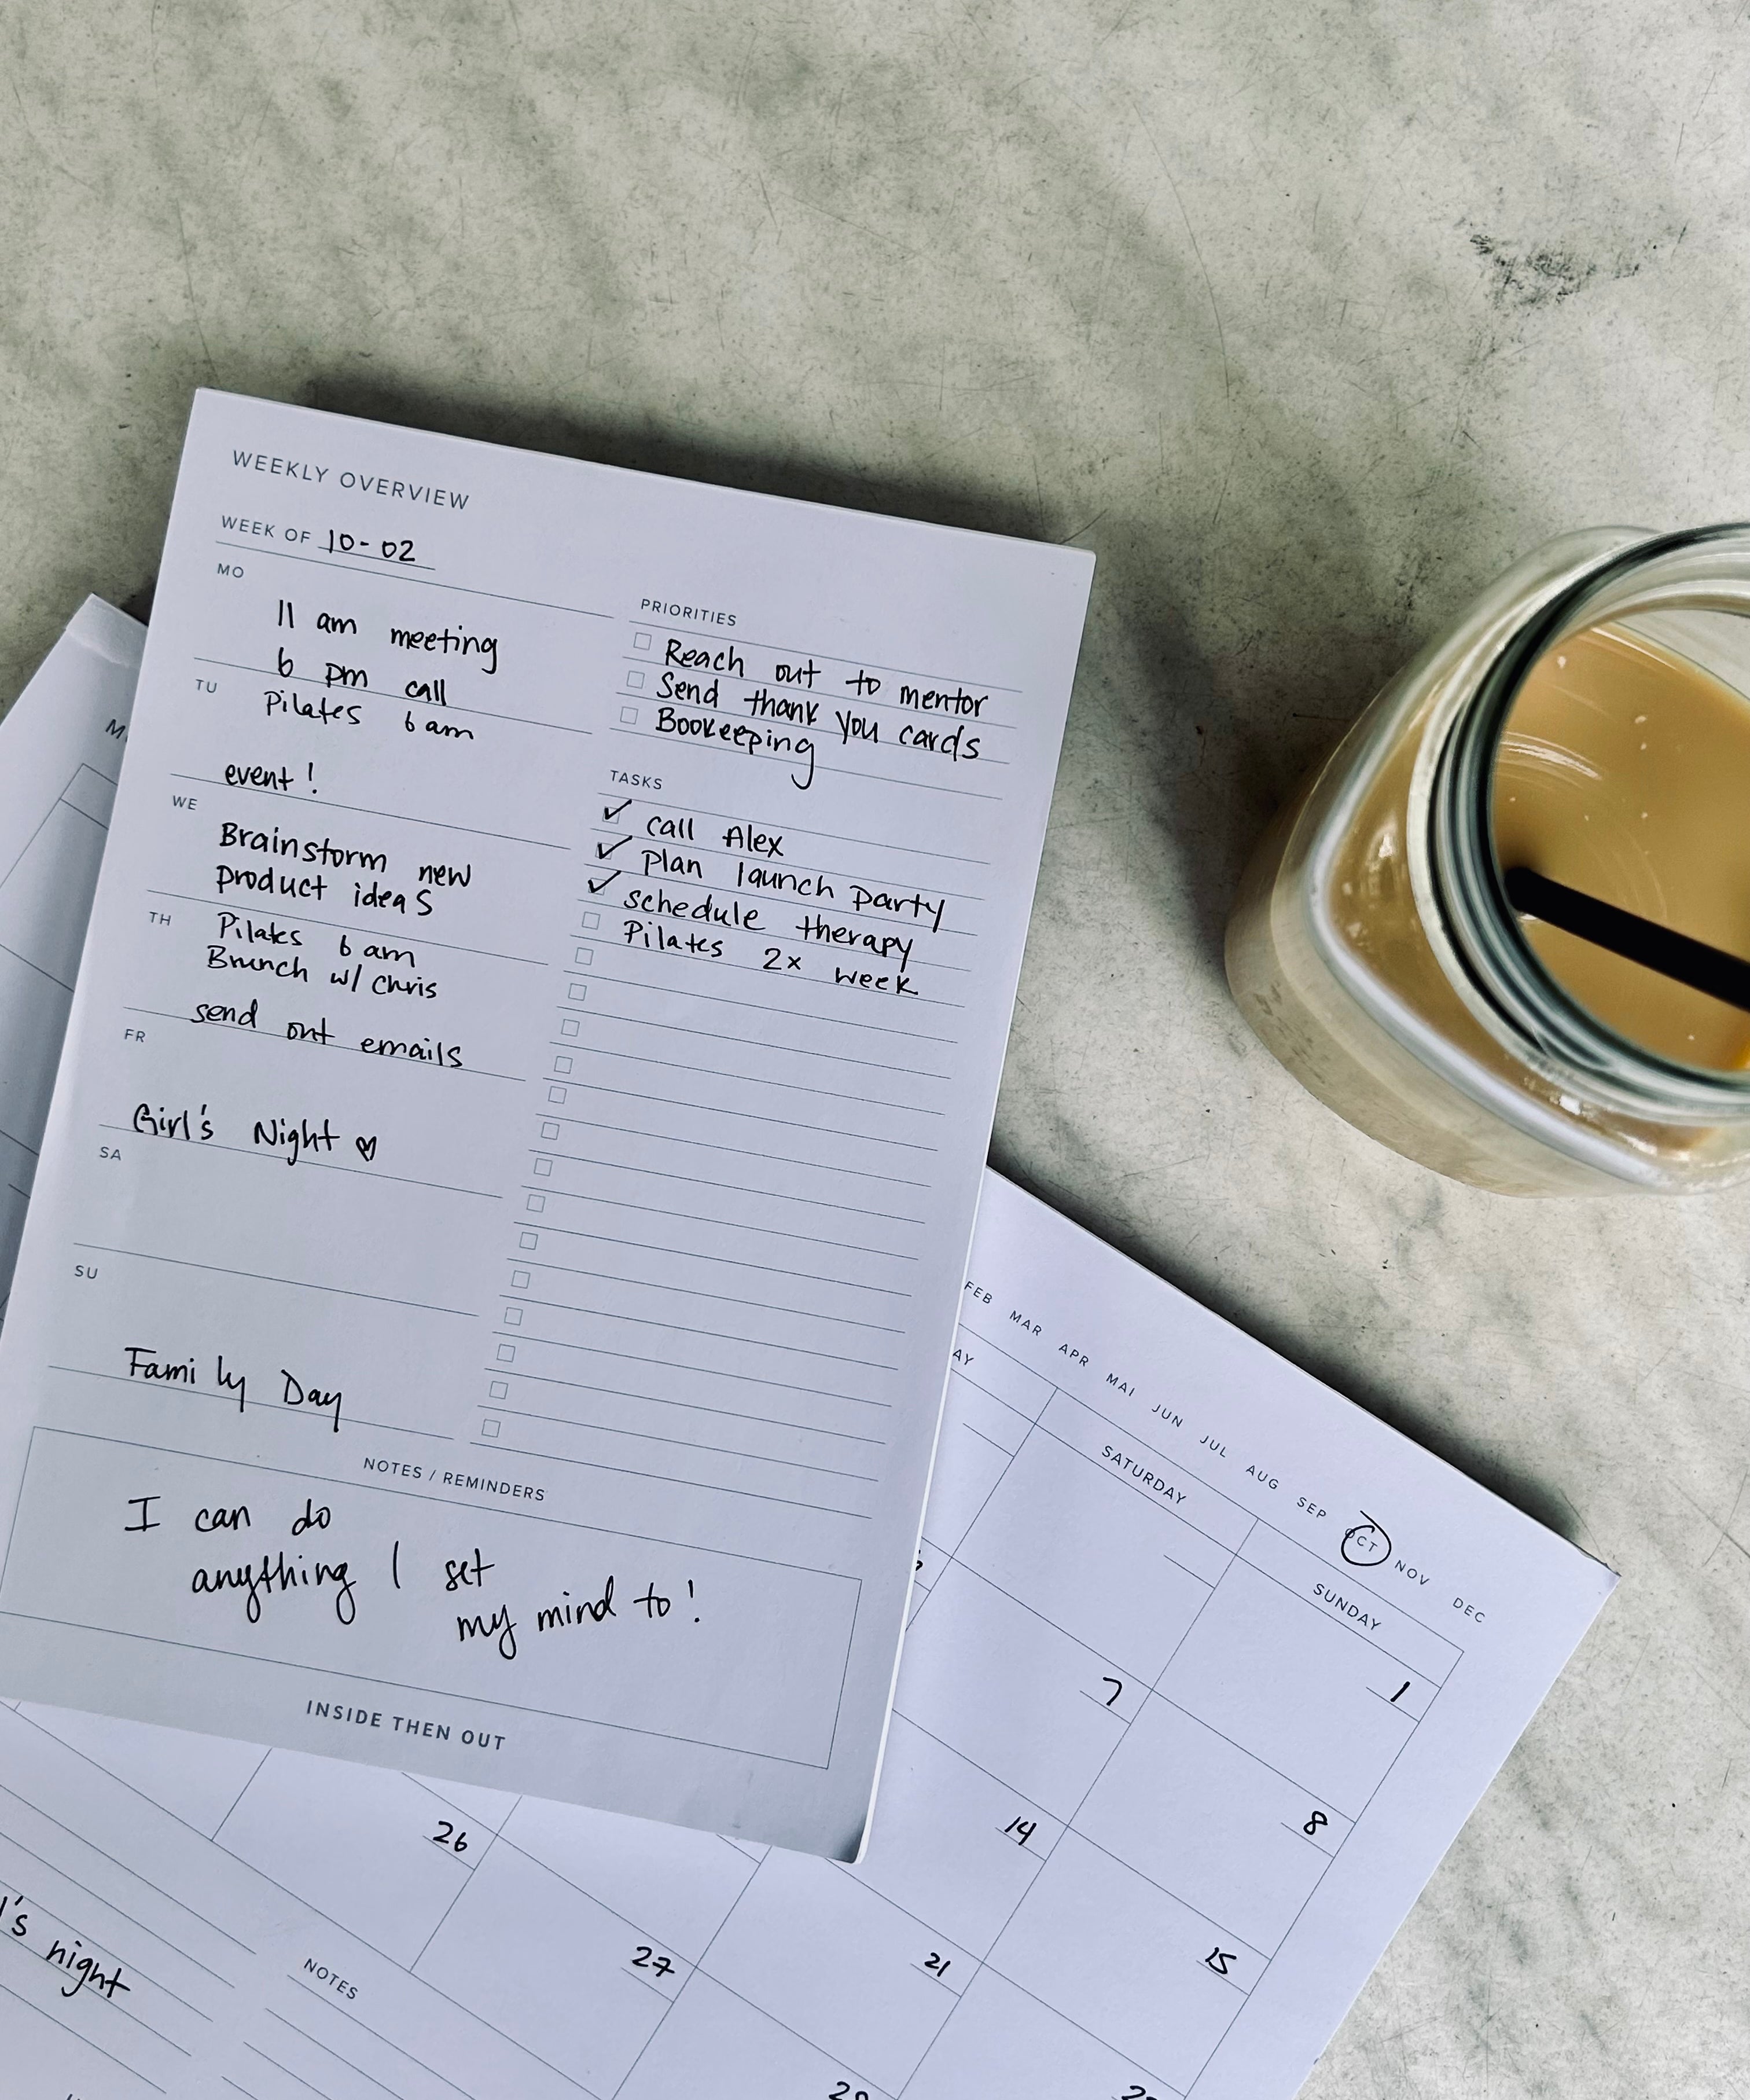 WEEKLY OVERVIEW
WEEK OF 10-02
MO
11 am meeting
6 pm call
TU
Pilates 6 am
event!
WE
Brainstorm new
product ideas
TH
Pilates 6 am
Brunch w/ Chris
send out emails
FR
Girl's Night ♡
SA
SU
Family Day
PRIORITIES
Reach out to mentor
Send thank you cards
Bookeeping
TASKS
✓ call Alex
✓ Plan launch party
✓ schedule therapy
Pilates 2x week
NOTES / REMINDERS
I can do
anything I set
my mind to!
INSIDE THEN OUT
FEB MAR APR MAI JUN JUL AUG SEP OCT NOV DEC
SATURDAY SUNDAY
1
7 8
14 15
21
26 27
's night
NOTES